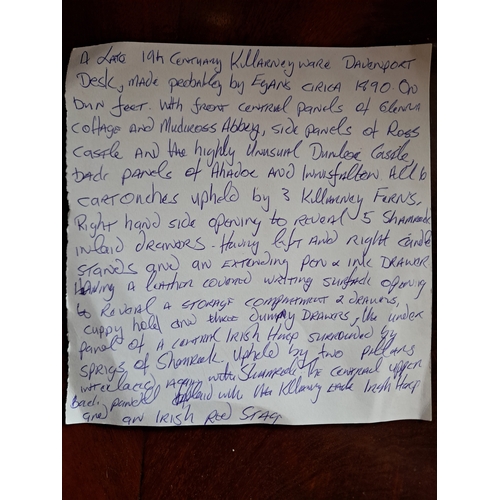 A Late 19th Century Killarney Ware Davenport
Desk, made probably by Egans circa 1890. On
bun feet. With front central panels of Glenna
Cottage and Mudkross Abbey, side panels of Ross
Castle and the highly unusual Dunloe Castle,
back panels of Ahadoe and Innisfallen All to
cartonches upheld by 3 Killarney Ferns.
Right hand side opening to reveal 5 Shamrock
inlaid drawers. Having left and right candle
stands and an extending pen & ink drawer
Having a leather covered writing surface opening
to reveal a storage compartment 2 drawers,
cuppy hold and three dummy drawers, the under
panel of a central Irish Harp surrounded by
sprigs of Shamrock upheld by two pillars
interlaced again with Shamrock the central upper
back panel inlaid with the Killarney Irish Harp
and an Irish Red Stag